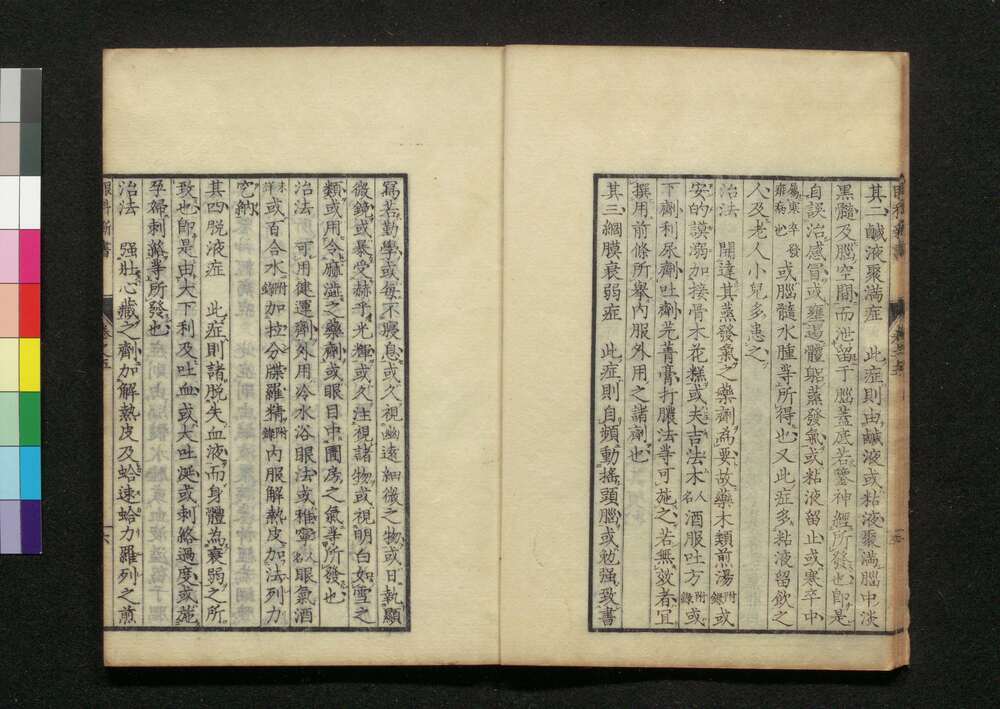 其二鹹液聚滿症　此症則由鹹液或粘液聚滿腦中淡
黑髓及腦空間而泄留于腦蓋底若鑒神經所發也卽是
自誤治感冒或壅遏體軀蒸發氣或粘液留止或寒卒中
雍病也或腦髓水腫等所得也又此症多粘液留飲之
人及老人小兒多患之
治法　開達其蒸發氣之藥劑為要故藥木類煎湯附錄或
安的謨溺加接骨木花糕或夫吉法木人名酒服吐方附錄或
下劑利尿劑吐劑芫菁膏打膿法等可施之若無效者宜
撰用前條所舉內服外用之諸劑也
其三網膜衰弱症　此症則自頻動搖頭腦或勉强致書
寫若勤學或每不寢息或久視幽遠細微之物或日執顯
微鏡或暴受赫乎光輝或久注視諸物或視明白如雪之
類或用令麻溢之藥劑或眼目中圊房之氣等所發也
治法　可用健運劑外用冷水浴眼法或稚寧人名眼氣酒
或百合水附錄加拉分牒羅精附錄內服解熱皮加法列力
其四脫液症　此症則諸脫失血液而身體為衰弱之所
致也卽是由大下利及吐血或大吐涎或刺絡過度或施
孕婦刺絡等所發也
治法　强壯心藏之劑加解熱皮及蛤速蛤力羅列之煎
眼科新書